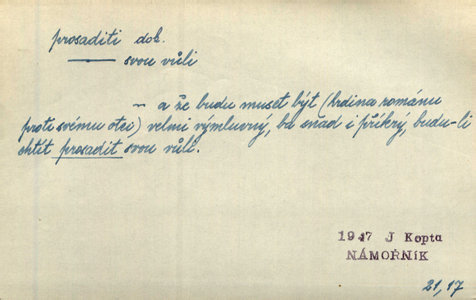 prosaditi dok.
—— svou vůli
~ a že budu muset být (hrdina románu
proti svému otci) velmi výmluvný, ba snad i příkrý, budu-li
chtít prosadit svou vůli.
1947 J Kopta
NÁMOŘNÍK
21,17